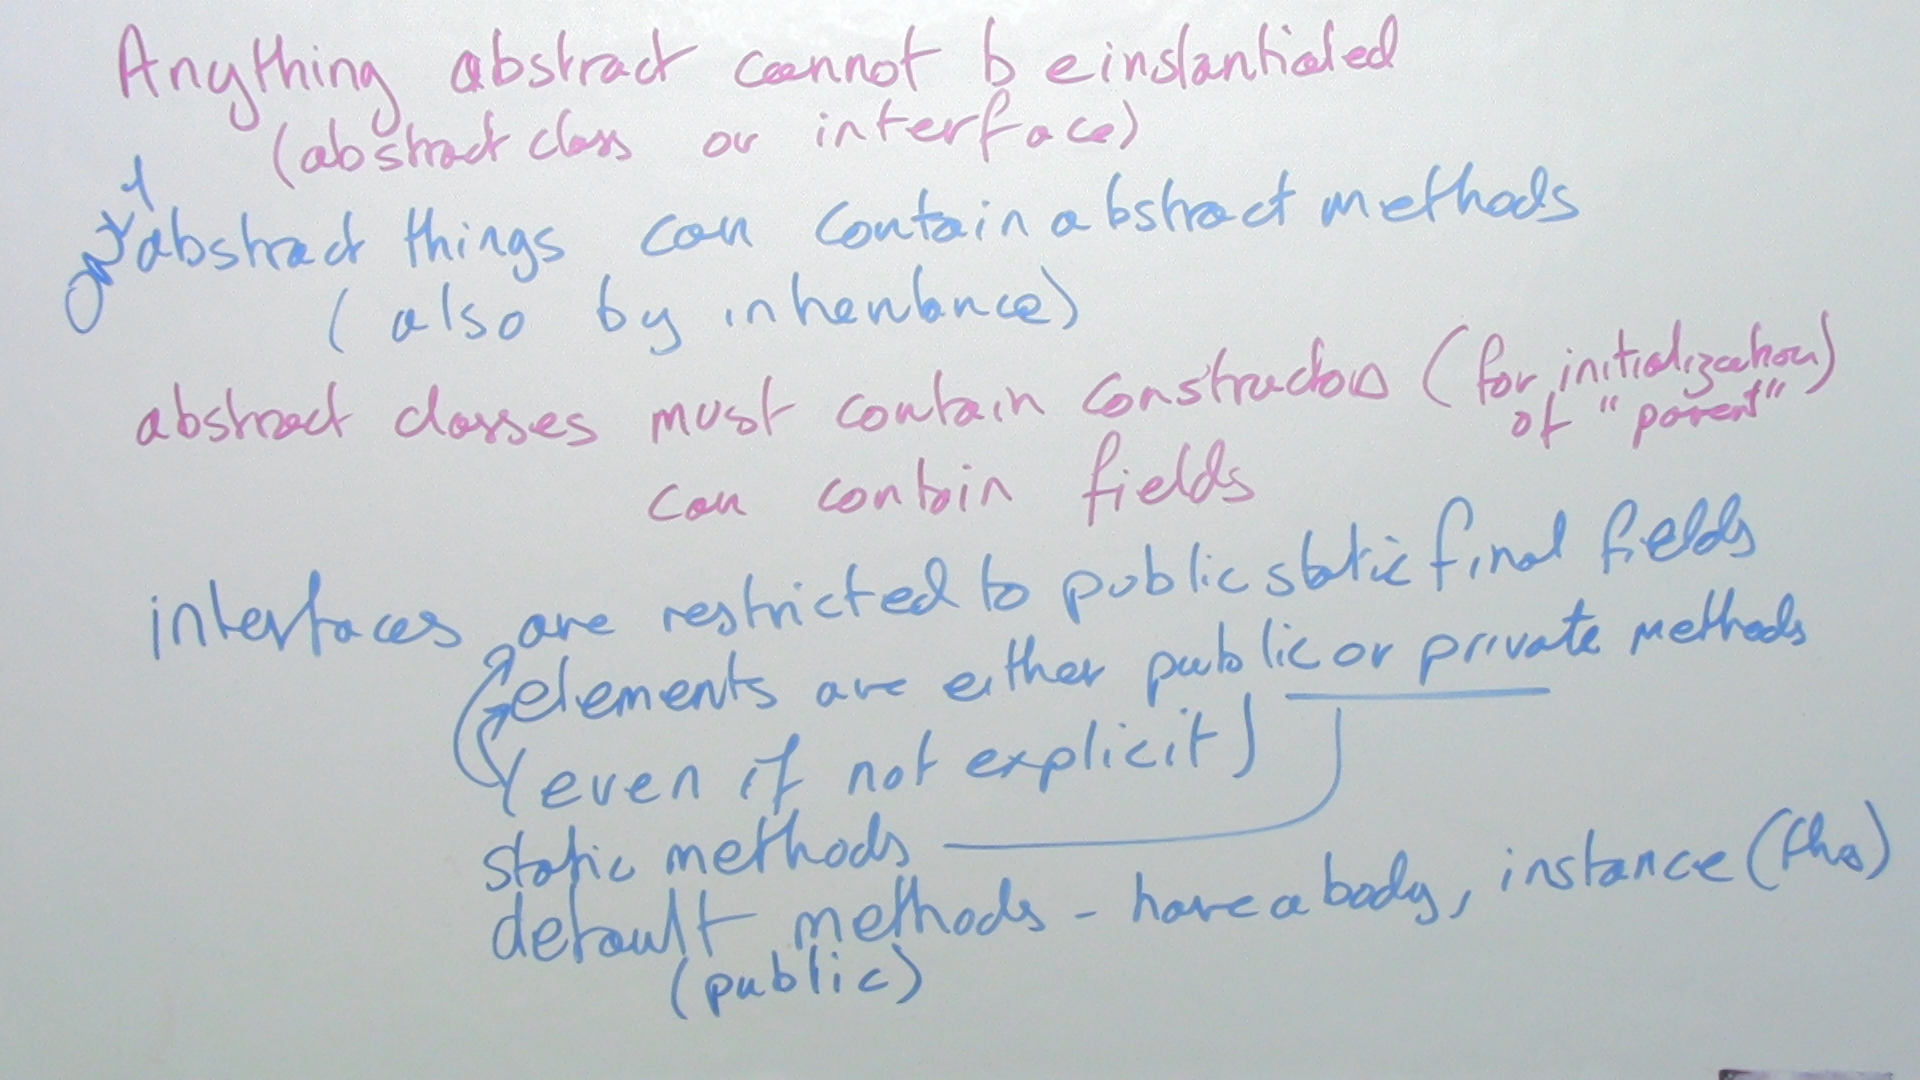 Anything abstract cannot be instantiated
(abstract class or interface)
only abstract things can contain abstract methods
(also by inheritance)
abstract classes must contain constructors (for initialization)
of "parent"
can contain fields
interfaces are restricted to public static final fields
elements are either public or private methods
(even if not explicit)
static methods
default methods - have a body, instance (this)
(public)